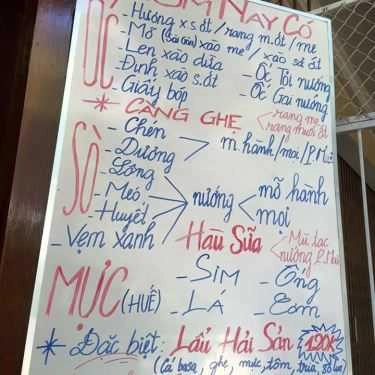 HÔM NAY CÓ
ỐC
- Hương x s.ớt / rang m.ớt / me
- Mỡ (Sài Gòn) xào me / xào sa ớt
- Len xào dừa
- Đinh xào s.ớt
- Giấy bóp
- Ốc Tỏi nướng
- Ốc Gai nướng
* CÀNG GHẸ
rang me
rang muối ớt
SÒ
- Chén
- Dương
- Lông
m hành / mọi / P.M
- Méo
- Huyết
- Vẹm xanh
nướng
mỡ hành
mọi
Hàu Sữa
Mù tạc
nướng P. Mai
MỰC (HUẾ)
- SIM - Ống
- LÁ - Cơm
* Đặc biệt: Lẩu Hải Sản 120K
(Cá basa, ghẹ, mực, tôm,